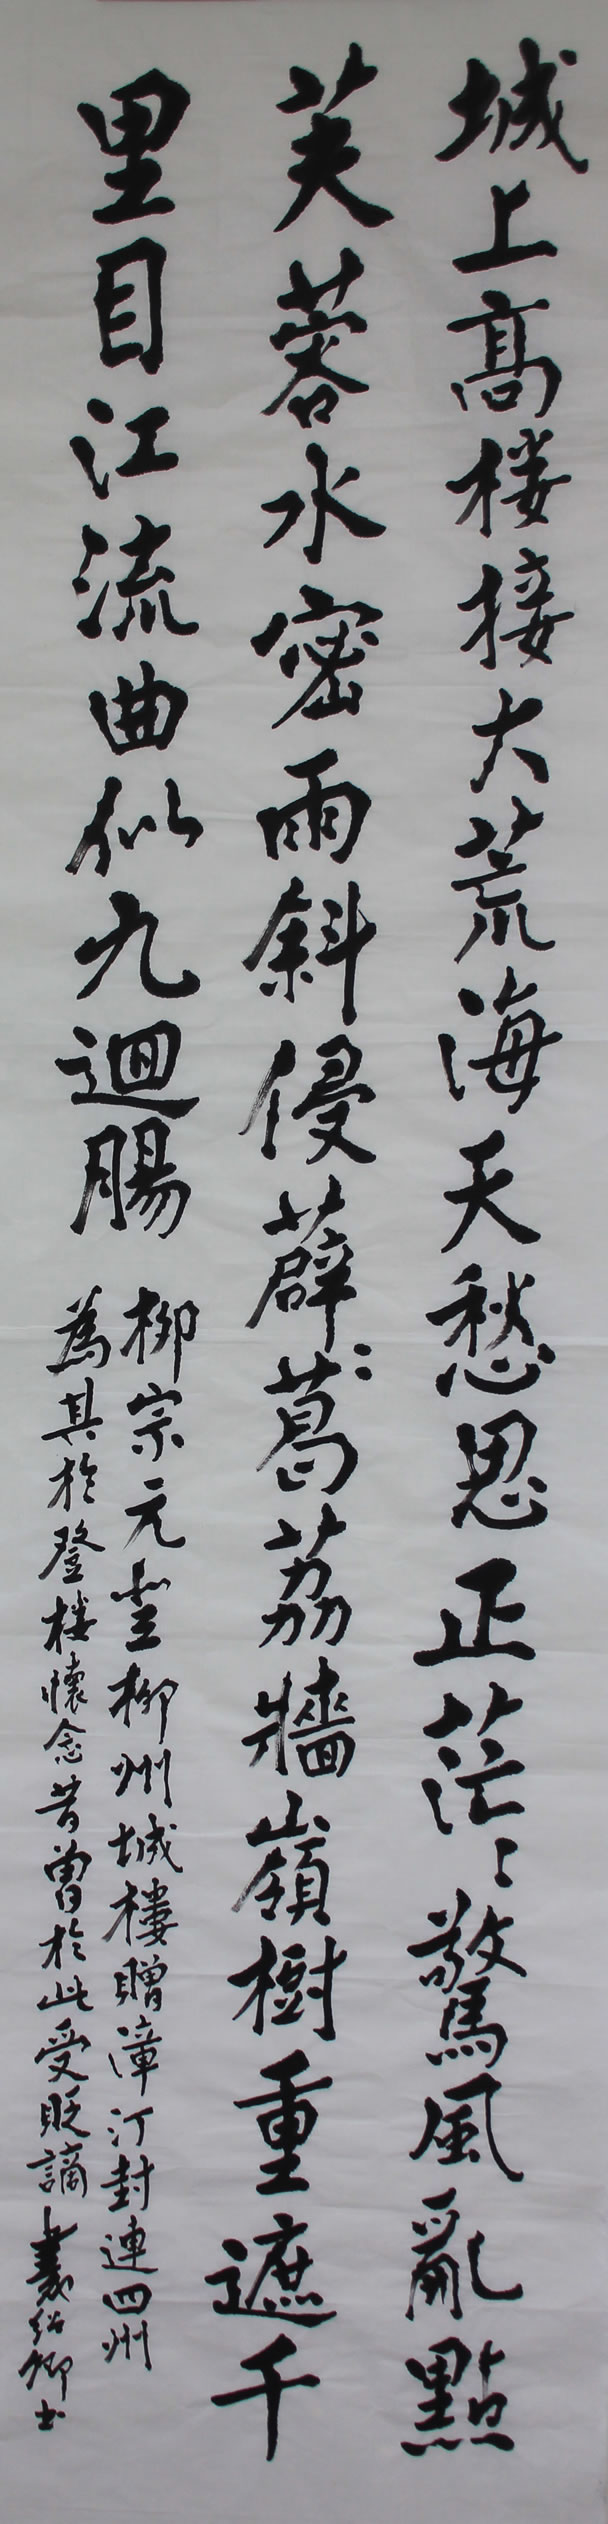 城上高楼接大荒海天愁思正茫〻驚風亂點
芙蓉水密雨斜侵薜葛荔牆嶺樹重遮千
里目江流曲似九迴腸
柳宗元登柳州城樓贈漳汀封連四州
為其於登楼懷念昔曾於此受貶謫 紹卿书